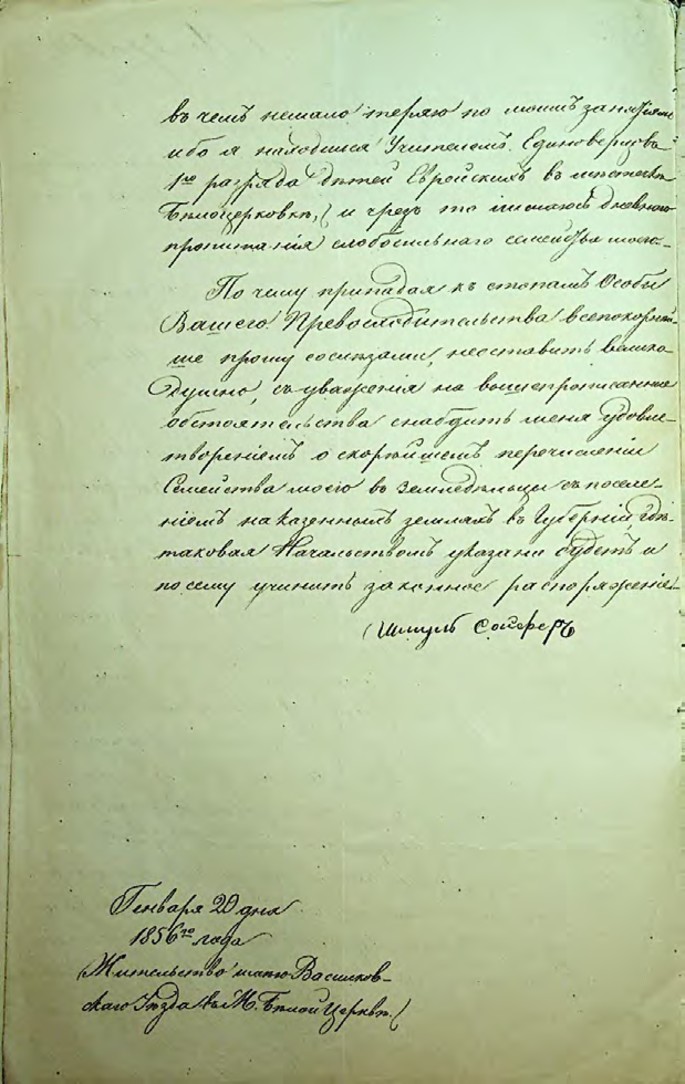 въ чемъ немало теряю по моимъ занятіямъ
ибо я находился Учителемъ Единоверцовъ
1го разряда дѣтей Еврейскихъ въ местечкѣ
Бѣлоцерковкѣ, и чрезъ то лишаюсь дневного
пропитанія слабосильнаго семейства моего
По чему припадая къ стопамъ Особы
Вашего Превосходительства всепокорнѣй-
ше прошу сослезами, неоставить велико-
душно, съ уваженія на вышепрописанные
обстоятельства снабдить меня удовле-
твореніемъ о скорѣйшемъ перечисленіи
Семейства моего въ Земледѣльцы съ поселе-
ніемъ на казенныхъ земляхъ въ Губерніи, гдѣ
таковая Начальствомъ указана будетъ и
по сему учинить законное распоряженіе
Шмуль Сойферъ
Генваря 20 дня
1856го года
Жительство имѣю Васильков-
скаго Уѣзда въ М. Бѣлой Церквѣ